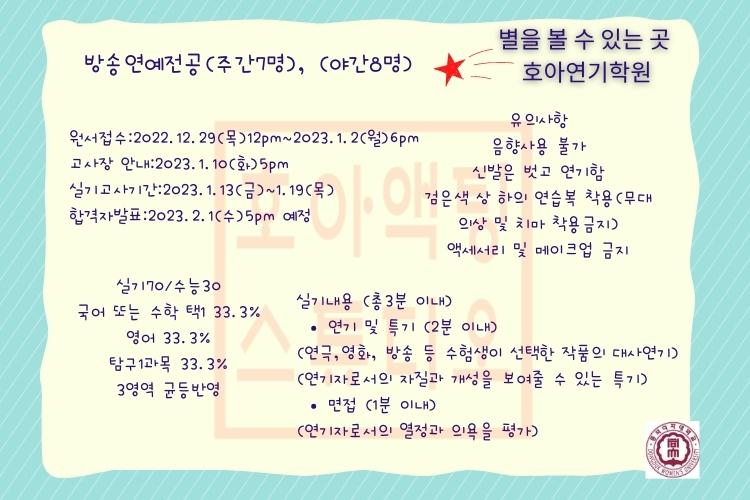 별을 볼 수 있는 곳
호아연기학원
방송연예전공(주간7명), (야간8명)
원서접수:2022.12.29(목)12pm~2023.1.2(월)6pm
고사장 안내:2023.1.10(화)5pm
실기고사기간:2023.1.13(금)~1.19(목)
합격자발표:2023.2.1(수)5pm 예정
유의사항
음향사용 불가
신발은 벗고 연기함
검은색 상 하의 연습복 착용(무대
의상 및 치마 착용금지)
액세서리 및 메이크업 금지
실기70/수능30
국어 또는 수학 택1 33.3%
영어 33.3%
탐구1과목 33.3%
3영역 균등반영
실기내용 (총3분 이내)
• 연기 및 특기 (2분 이내)
(연극,영화, 방송 등 수험생이 선택한 작품의 대사연기)
(연기자로서의 자질과 개성을 보여줄 수 있는 특기)
• 면접 (1분 이내)
(연기자로서의 열정과 의욕을 평가)
호아액팅
스튜디오
동덕여자대학교
DONGDUK WOMEN'S UNIVERSITY